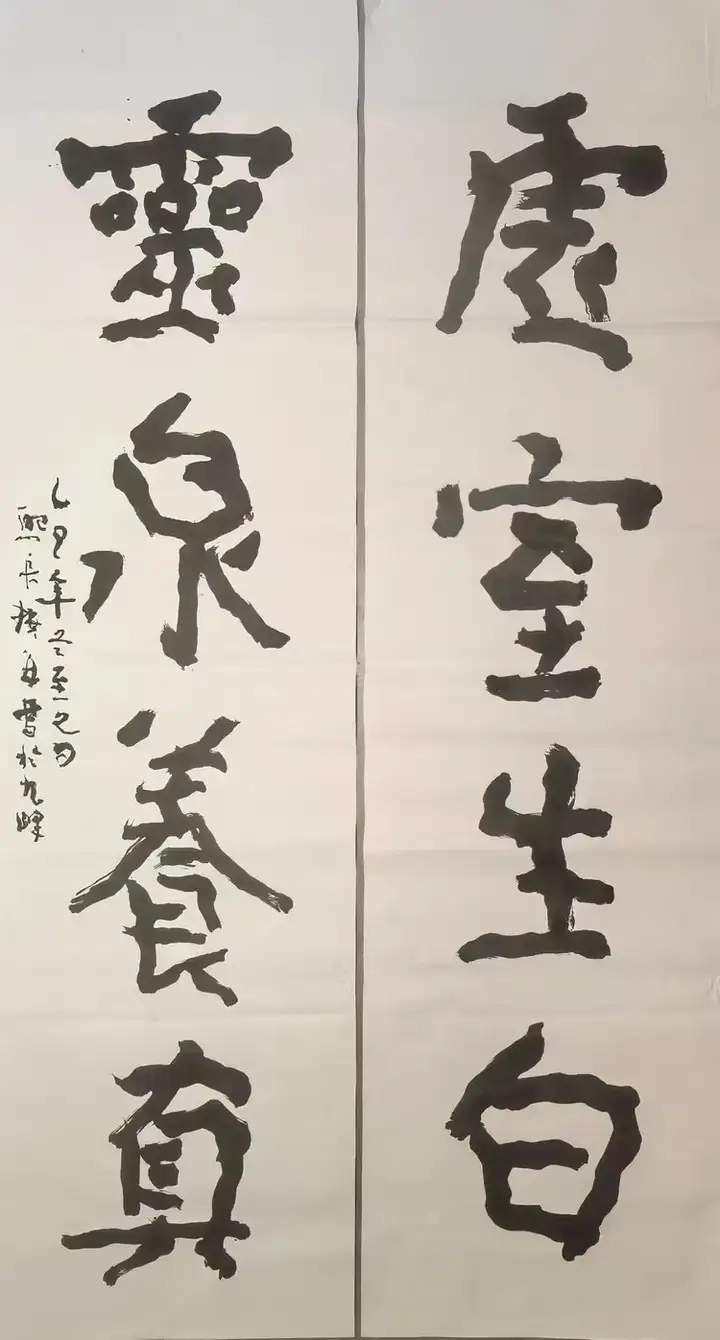 虛室生白
靈泉養真
乙巳年冬至之月
熙長 書於九峰